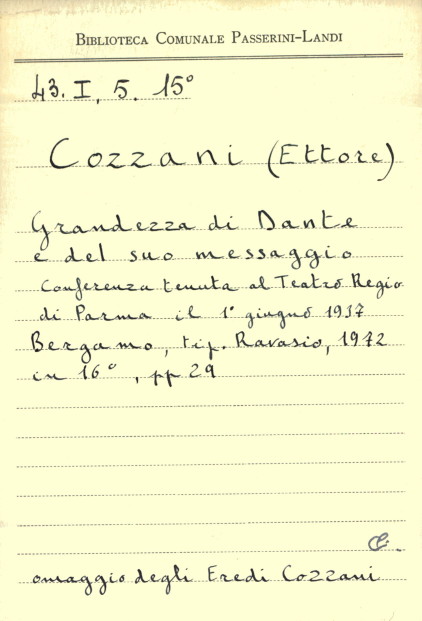 BIBLIOTECA COMUNALE PASSERINI-LANDI
43. I, 5. 15°
Cozzani (Ettore)
Grandezza di Dante
e del suo messaggio
Conferenza tenuta al Teatro Regio
di Parma il 1° giugno 1937
Bergamo, tip. Ravasio, 1942
in 16°, pp 29
omaggio degli Eredi Cozzani